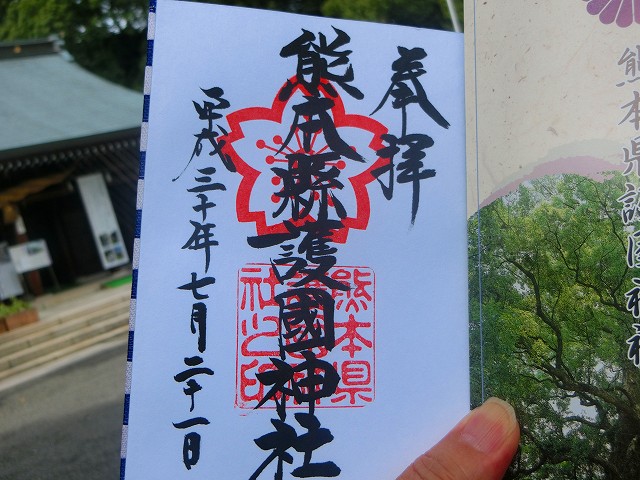 熊本県護国神社
奉拝
熊本縣護國神社
平成三十年七月二十一日
熊本県
社之印